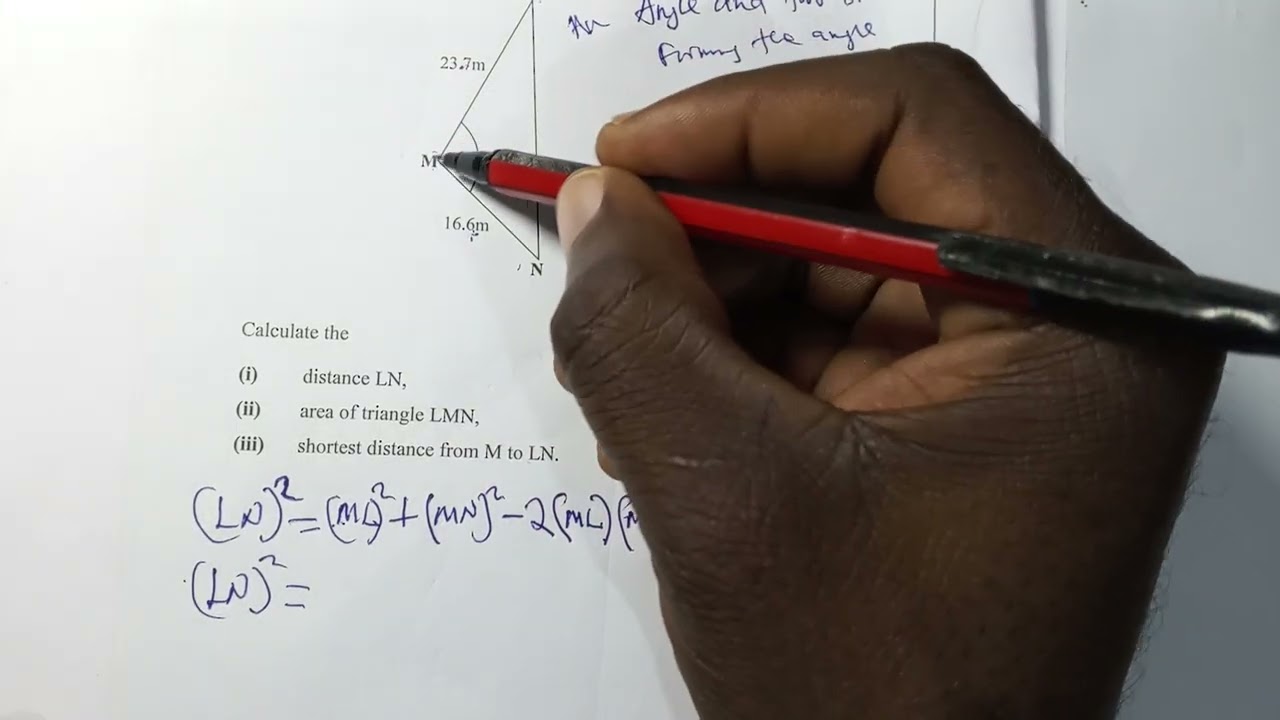 An Angle and
Forming the angle
23.7m
M
16.6m
N
Calculate the
(i) distance LN,
(ii) area of triangle LMN,
(iii) shortest distance from M to LN.
(LN)² = (ML)² + (MN)² - 2(ML)(
(LN)² =